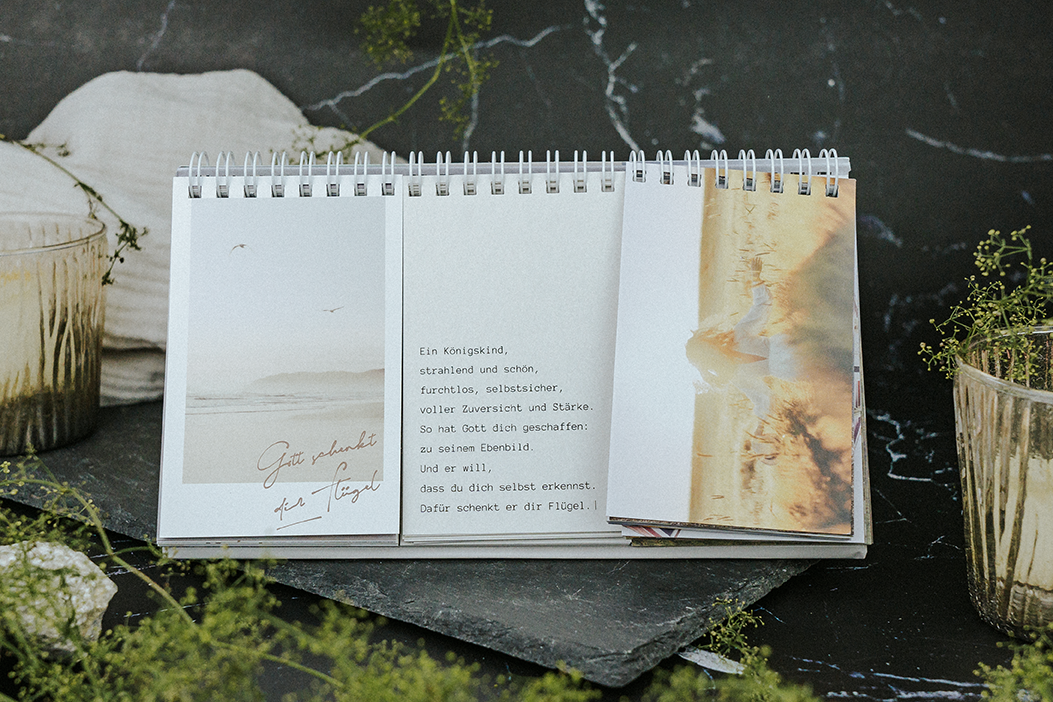 Gott schenkt
dir Flügel
Ein Königskind,
strahlend und schön,
furchtlos, selbstsicher,
voller Zuversicht und Stärke.
So hat Gott dich geschaffen:
zu seinem Ebenbild.
Und er will,
dass du dich selbst erkennst.
Dafür schenkt er dir Flügel.|